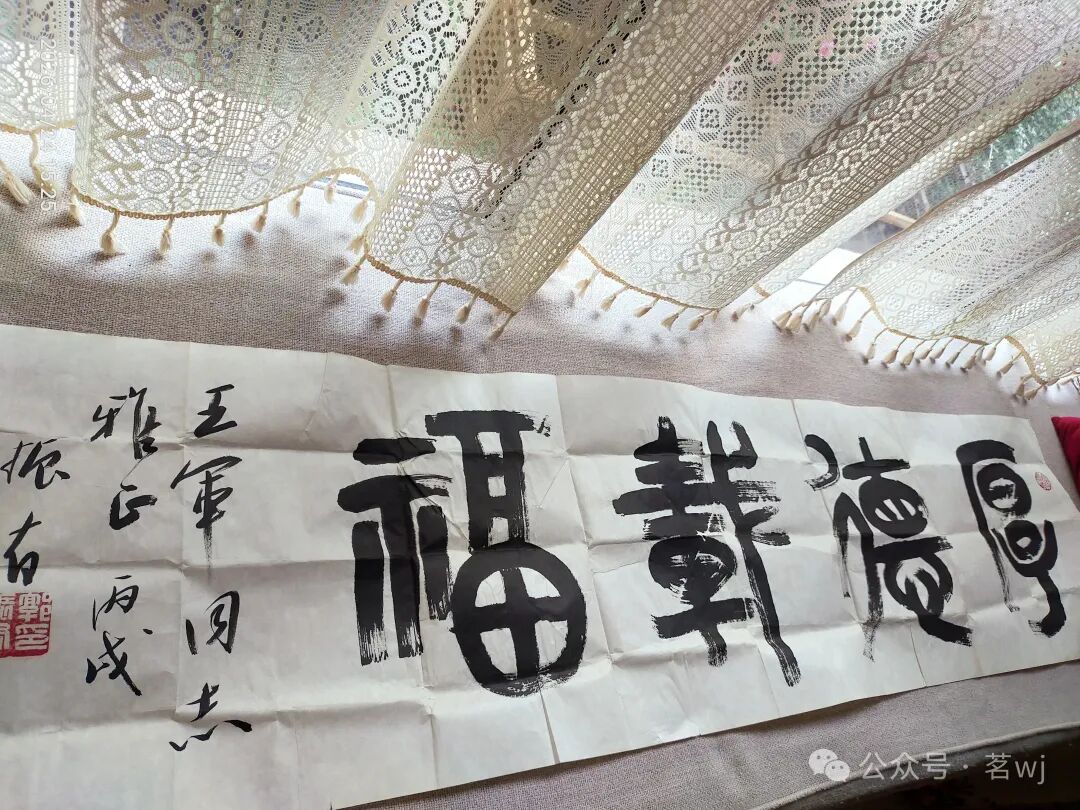 厚德載福
王軍同志
雅正 丙戌
振有
公众号·茗wj